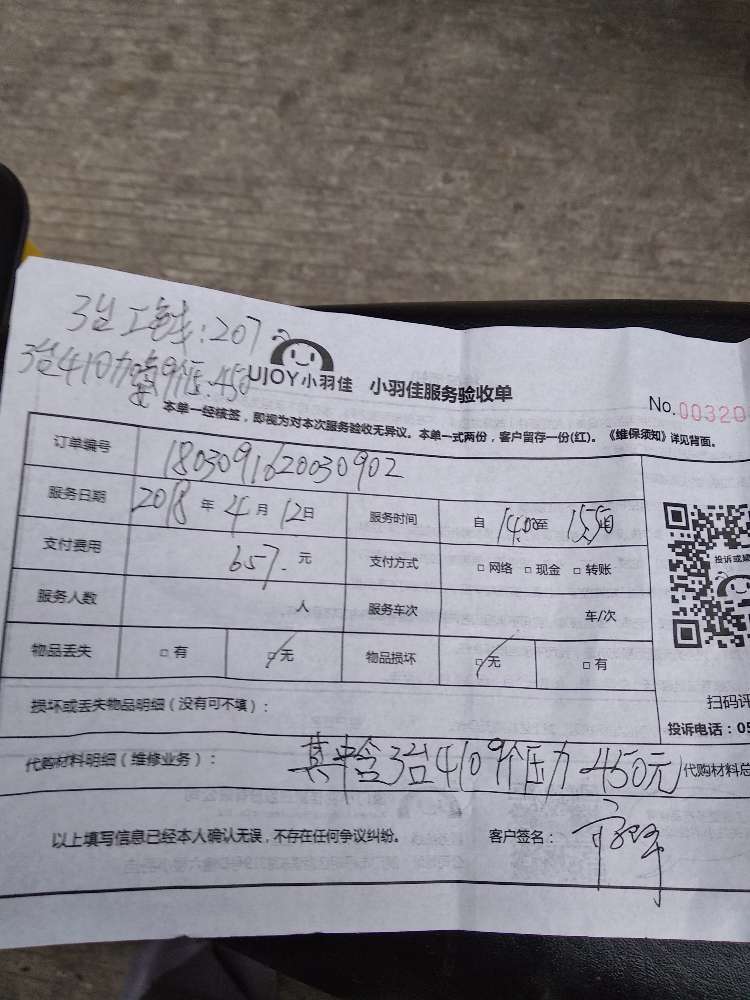 3台工钱:207
3台410加氟9个压:450
UJOY小羽佳 小羽佳服务验收单
No.00320
本单一经核签，即视为对本次服务验收无异议。本单一式两份，客户留存一份(红)。《维保须知》详见背面。
订单编号 180309162003 0902
服务日期 2018 年 4 月 12 日 服务时间 自 14:00 至 15:50 止
支付费用 657. 元 支付方式 □ 网络 □ 现金 □ 转账
投诉或
服务人数 人 服务车次 车/次
物品丢失 □ 有 □ 无 物品损坏 □ 无 □ 有
扫码评
损坏或丢失物品明细（没有可不填）：
投诉电话：05
代购材料明细（维修业务）： 其中含3台410 9个压力 450元 代购材料总
以上填写信息已经本人确认无误，不存在任何争议纠纷。 客户签名：